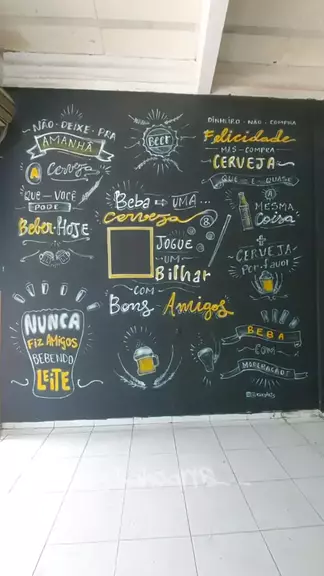 NÃO · DEIXE · PRA
AMANHÃ
A Cerveja
QUE - VOCÊ
PODE
Beber · HOJE
NUNCA
FIZ AMIGOS
BEBENDO
LEITE
BEER
Beba UMA
cerveja
8
JOGUE
UM
Bilhar
COM
Bons Amigos
DINHEIRO · NÃO · COMPRA
Felicidade
MAS · COMPRA
CERVEJA
QUE É QUASE
A
MESMA
Coisa
+
CERVEJA
Por favor
BEBA
COM
MODERAÇÃO